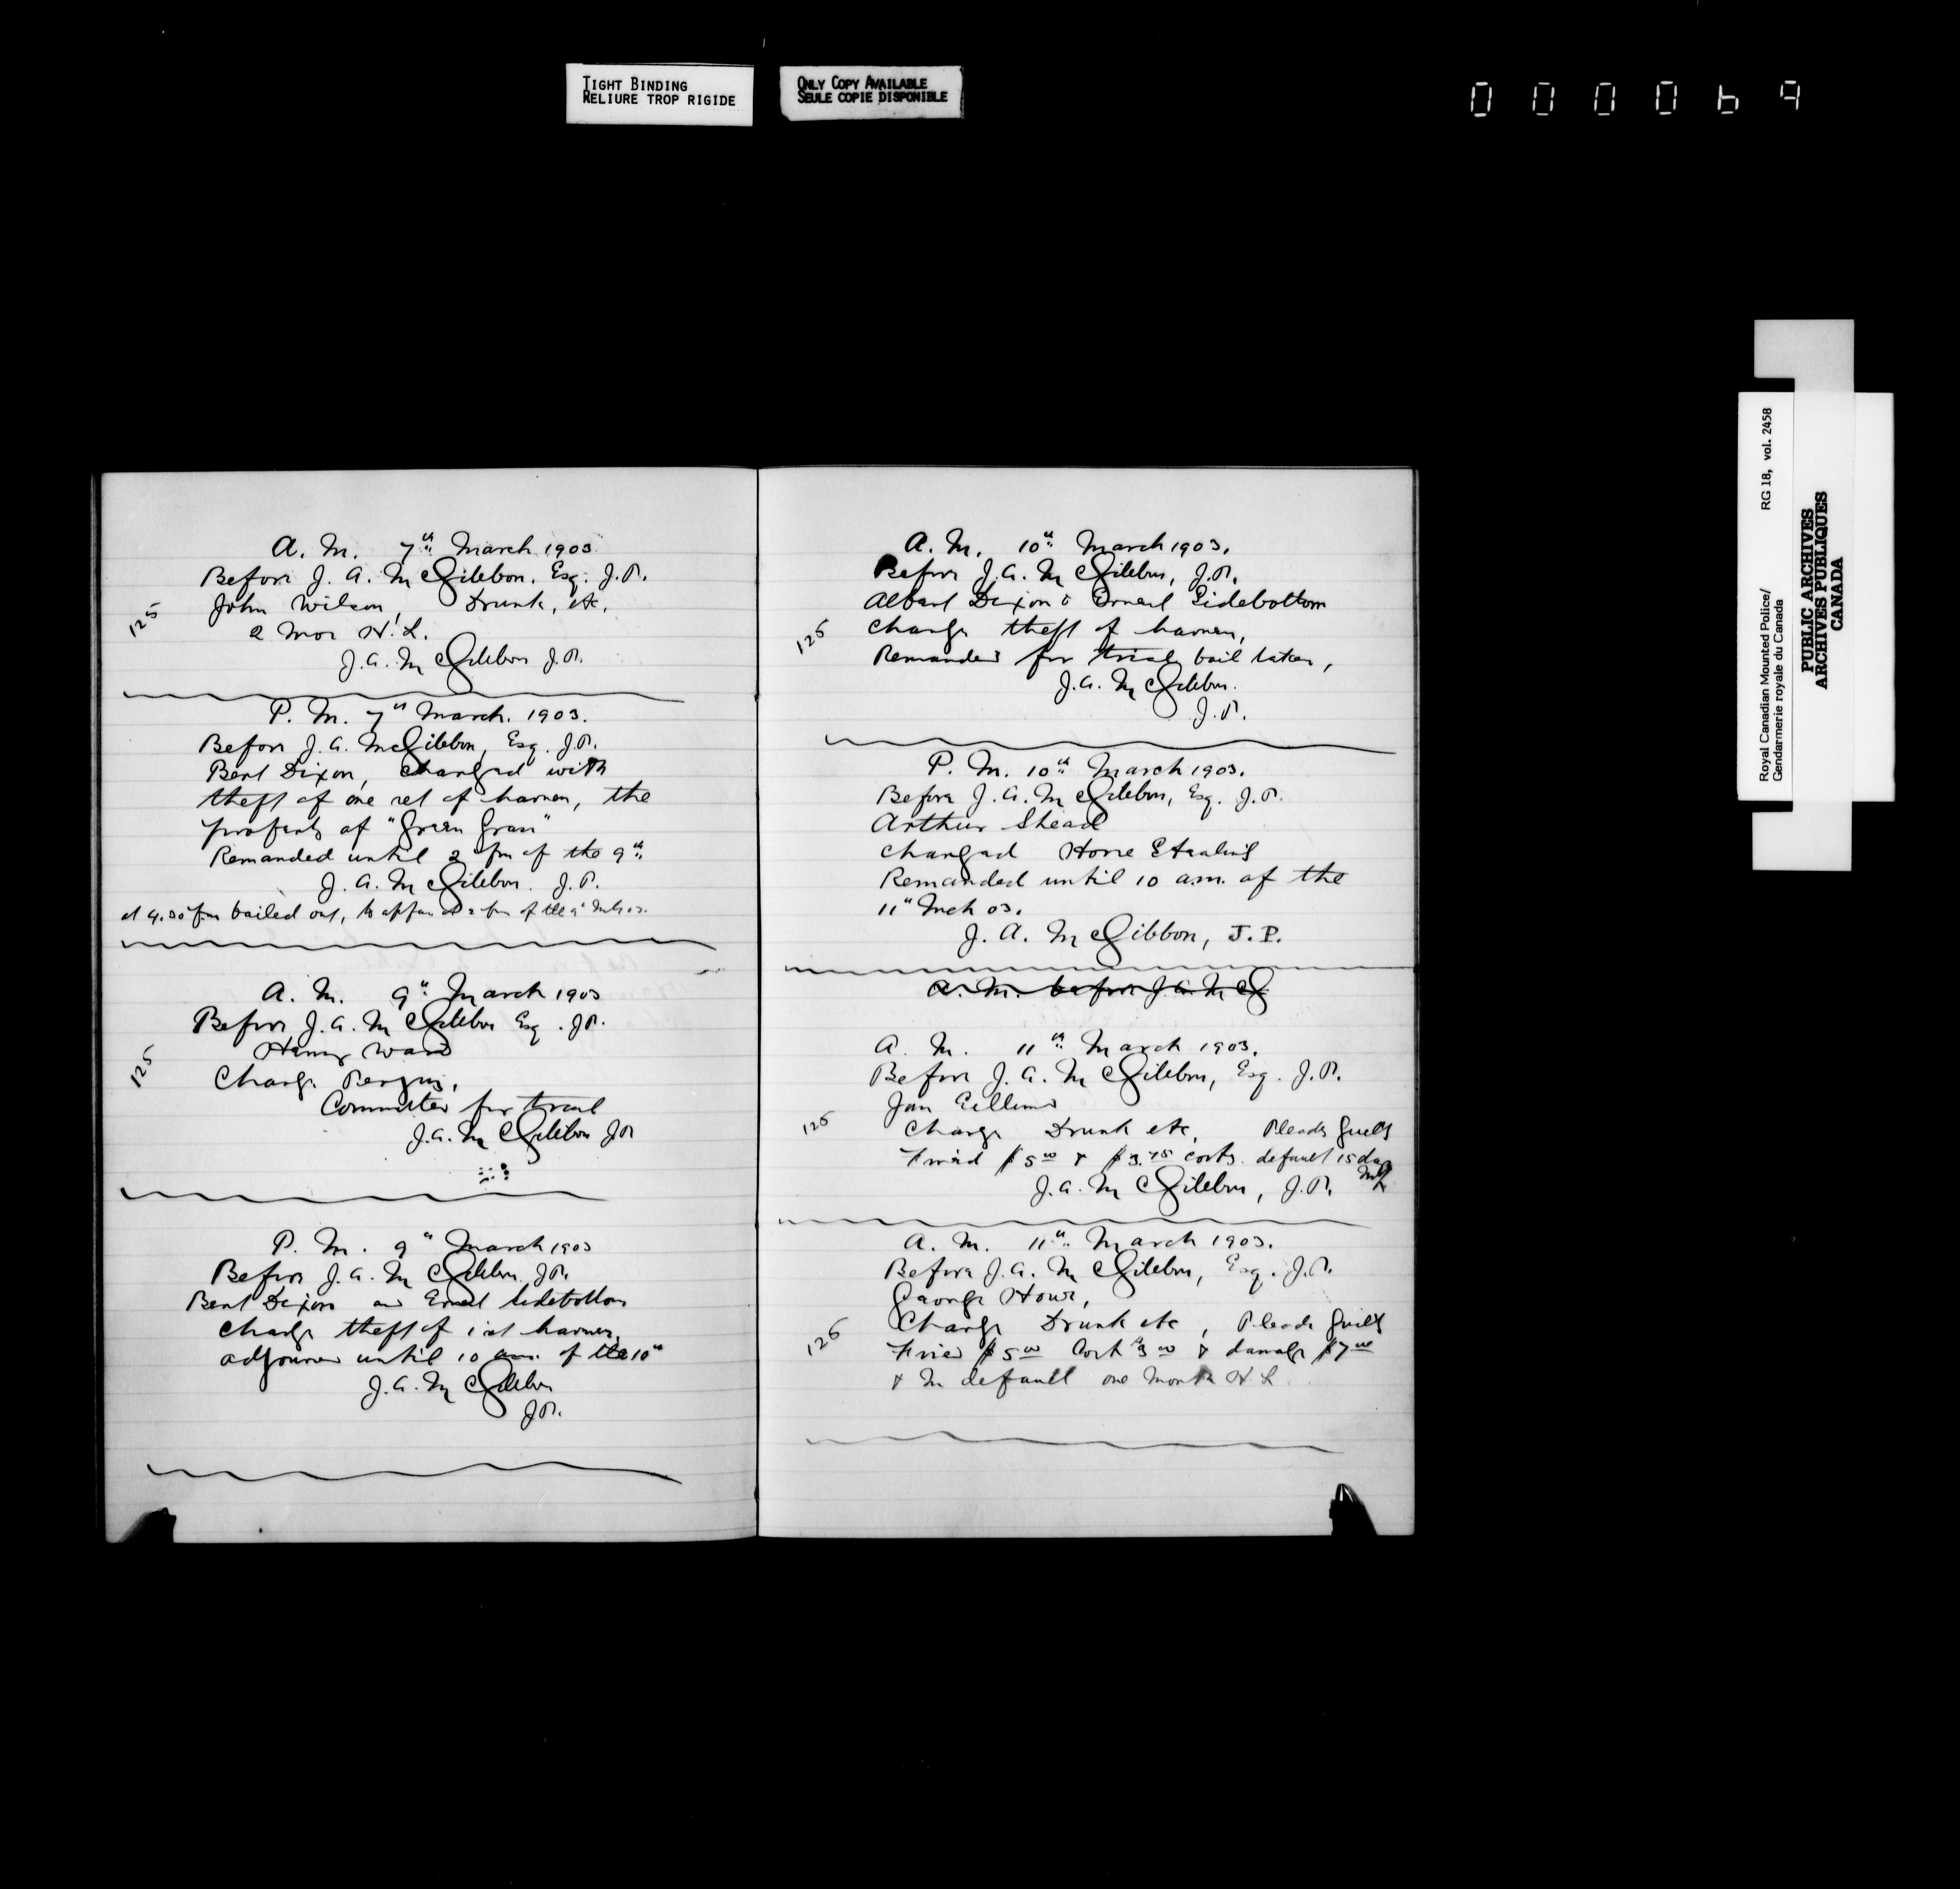 TIGHT BINDING
RELIURE TROP RIGIDE
ONLY COPY AVAILABLE
SEULE COPIE DISPONIBLE
000069
A. M. 7th March 1903
Before J. A. McGibbon, Esq. J.P.
125
John Wilson, Drunk, etc.
2 mos H.L.
J.A. McGibbon J.P.
P. M. 7th March. 1903.
Before J. A. McGibbon, Esq. J.P.
Bert Dixon, charged with
theft of one set of harness, the
property of "Green Grass"
Remanded until 2 pm of the 9th
J. A. McGibbon. J.P.
at 4.30 pm bailed out, to appear at 2 pm of the 9th Mch 03.
A. M. 9th March 1903
Before J. A. McGibbon Esq. J.P.
Henry Ward
125
Charge Perjury,
Committed for trial
J.A. McGibbon JP
P. M. 9th March 1903
Before J. A. McGibbon JP.
Bert Dixon and Ernest Sidebottom
Charge theft of 1 set harness,
adjourned until 10 am. of the 10th
J.A. McGibbon
JP.
A. M. 10th March 1903.
Before J.A. McGibbon, J.P.
Albert Dixon & Ernest Sidebottom
126
Charge theft of harness,
Remanded for trial, bail taken,
J.A. McGibbon.
J.P.
P. M. 10th March 1903.
Before J. A. McGibbon, Esq. J.P.
Arthur Shead
charged Horse Stealing
Remanded until 10 a.m. of the
11th Mch 03.
J. A. McGibbon, J.P.
A. M. before J. A. McG
A. M. 11th March 1903.
Before J. A. McGibbon, Esq. J.P.
126
Charge Drunk etc, Pleads Guilty
Fined $5.00 & $3.75 costs. default 15 days
J.A. McGibbon, J.P.
A. M. 11th March 1903.
Before J.A. McGibbon, Esq. J.P.
George Howe,
126
Charge Drunk etc, Pleads Guilty
Fined $5.00 Cost $3.00 & damage $7.00
& in default one month H.L.
Royal Canadian Mounted Police/ RG 18, vol. 2458
Gendarmerie royale du Canada
PUBLIC ARCHIVES
ARCHIVES PUBLIQUES
CANADA